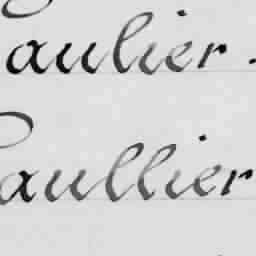 aulier.
aullier